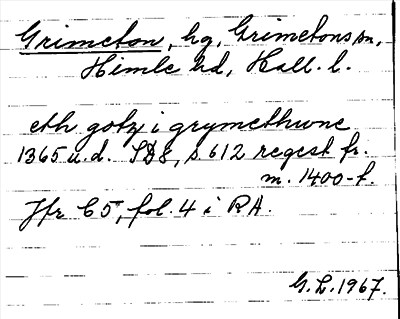 Grimeton, hg, Grimetons sn,
Himle hd, Hall. l.
eth gotz i grymethwne
1365 u.d. SD8, s. 612 regest fr.
m. 1400-t.
Jfr C5, fol. 4 i RA.
G.L. 1967.